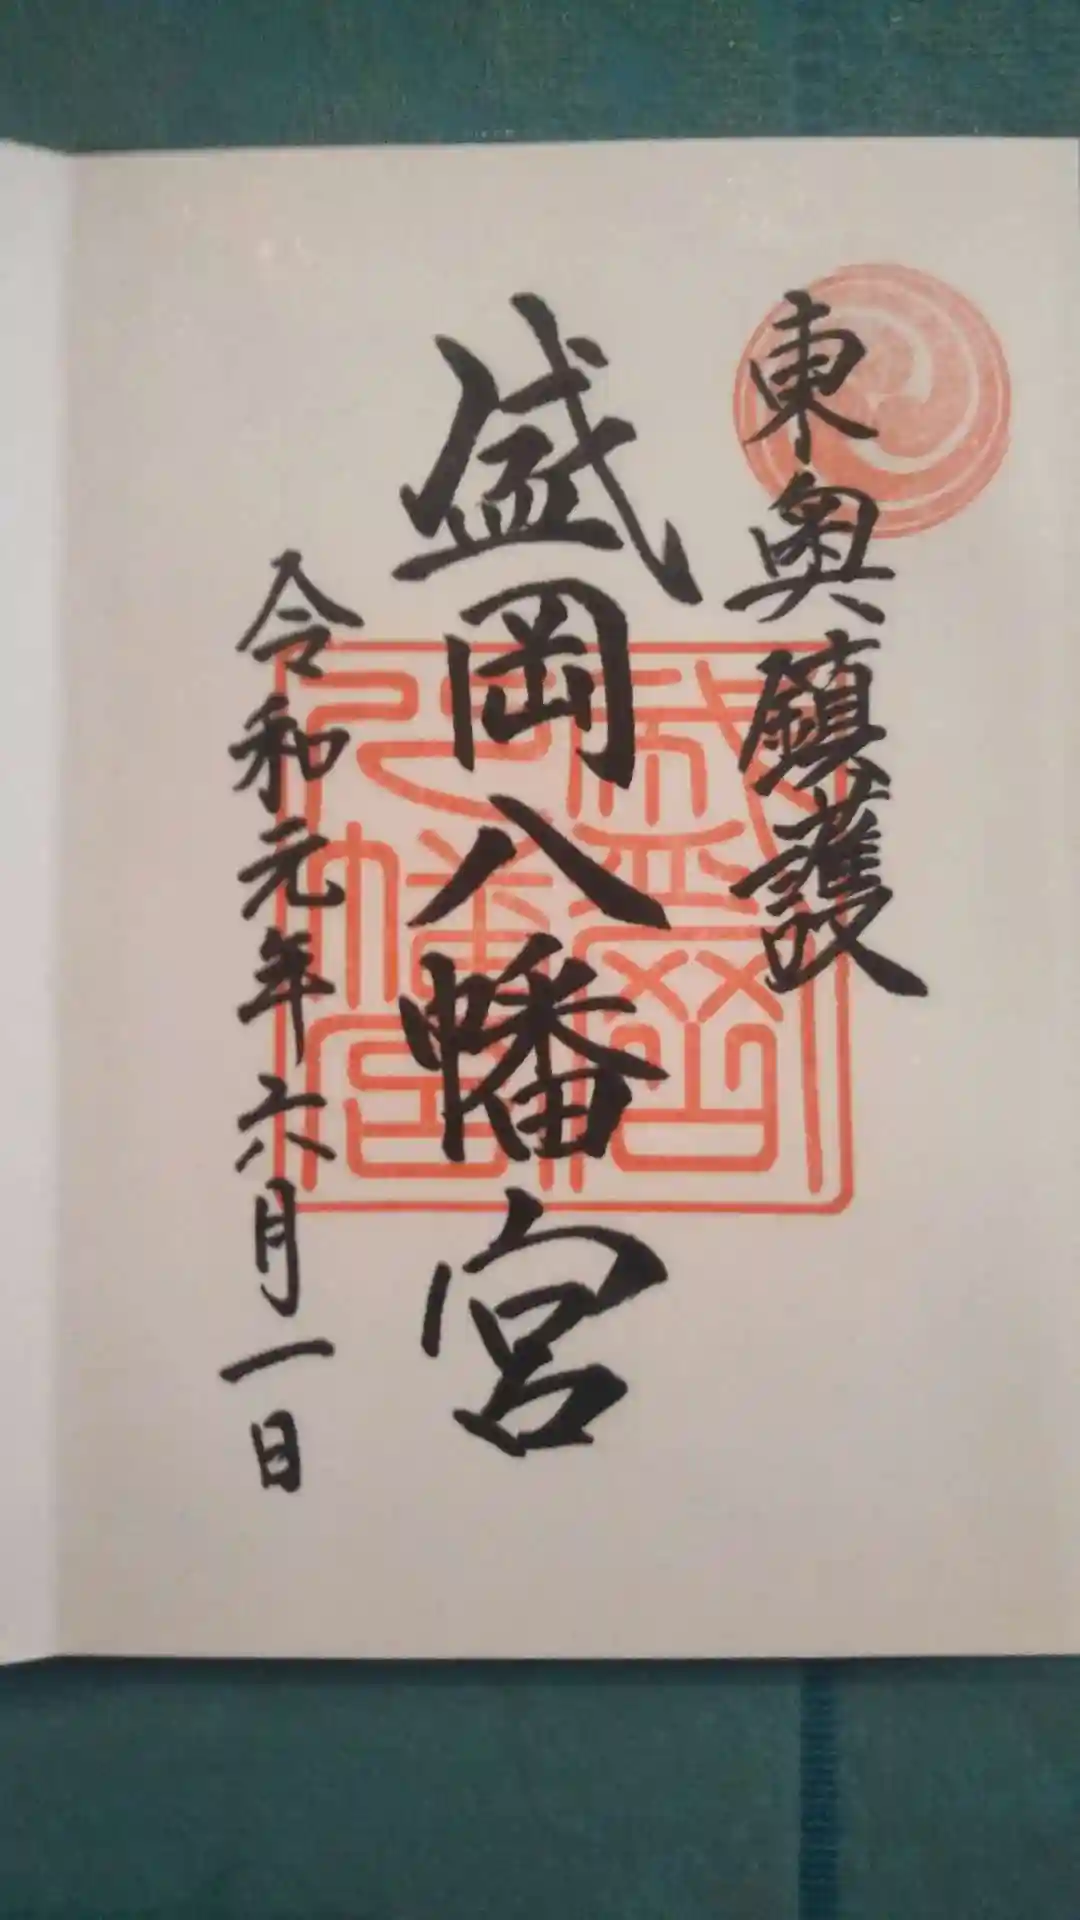 東奥鎮護
盛岡八幡宮
令和元年六月一日
盛岡八幡宮